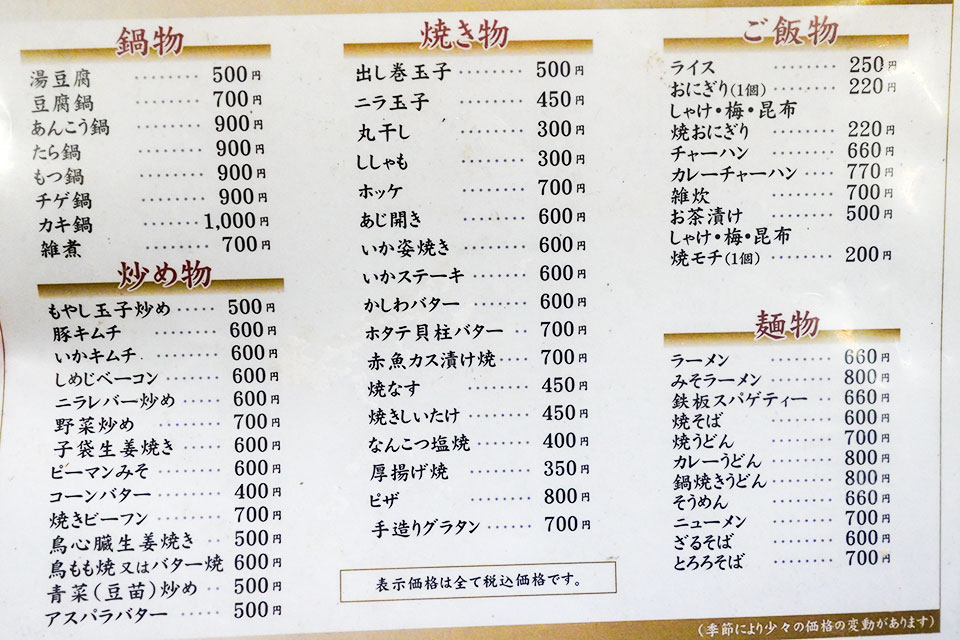 鍋物
湯豆腐 ········· 500円
豆腐鍋 ········· 700円
あんこう鍋 ········ 900円
たら鍋 ········ 900円
もつ鍋 ········· 900円
チゲ鍋 ········· 900円
カキ鍋 ········ 1,000円
雑煮 ········ 700円
炒め物
もやし玉子炒め ····· 500円
豚キムチ ········ 600円
いかキムチ ········ 600円
しめじベーコン ······ 600円
ニラレバー炒め ····· 600円
野菜炒め ······· 700円
子袋生姜焼き ····· 600円
ピーマンみそ ······ 600円
コーンバター ······ 400円
焼きビーフン ······ 700円
鳥心臓生姜焼き ·· 500円
鳥もも焼又はバター焼 600円
青菜(豆苗)炒め ·· 500円
アスパラバター ····· 500円
焼き物
出し巻玉子 ········ 500円
ニラ玉子 ········ 450円
丸干し ········ 300円
ししゃも ········ 300円
ホッケ ········ 700円
あじ開き ········ 600円
いか姿焼き ······· 600円
いかステーキ ······ 600円
かしわバター ······· 600円
ホタテ貝柱バター ·· 700円
赤魚カス漬け焼·· 700円
焼なす ········ 450円
焼きしいたけ ······ 450円
なんこつ塩焼 ······· 400円
厚揚げ焼 ········ 350円
ピザ ········ 800円
手造りグラタン ······ 700円
表示価格は全て税込価格です。
ご飯物
ライス ········ 250円
おにぎり(1個) ····· 220円
しゃけ・梅・昆布
焼おにぎり ······· 220円
チャーハン ······· 660円
カレーチャーハン ···· 770円
雑炊 ········ 700円
お茶漬け ········ 500円
しゃけ・梅・昆布
焼モチ(1個) ······ 200円
麺物
ラーメン ········ 660円
みそラーメン ······ 800円
鉄板スパゲティー ·· 660円
焼そば ········ 600円
焼うどん ········ 700円
カレーうどん ······ 800円
鍋焼きうどん ····· 800円
そうめん ········ 660円
ニューメン ······· 700円
ざるそば ········ 600円
とろろそば ······· 700円
(季節により少々の価格の変動があります)